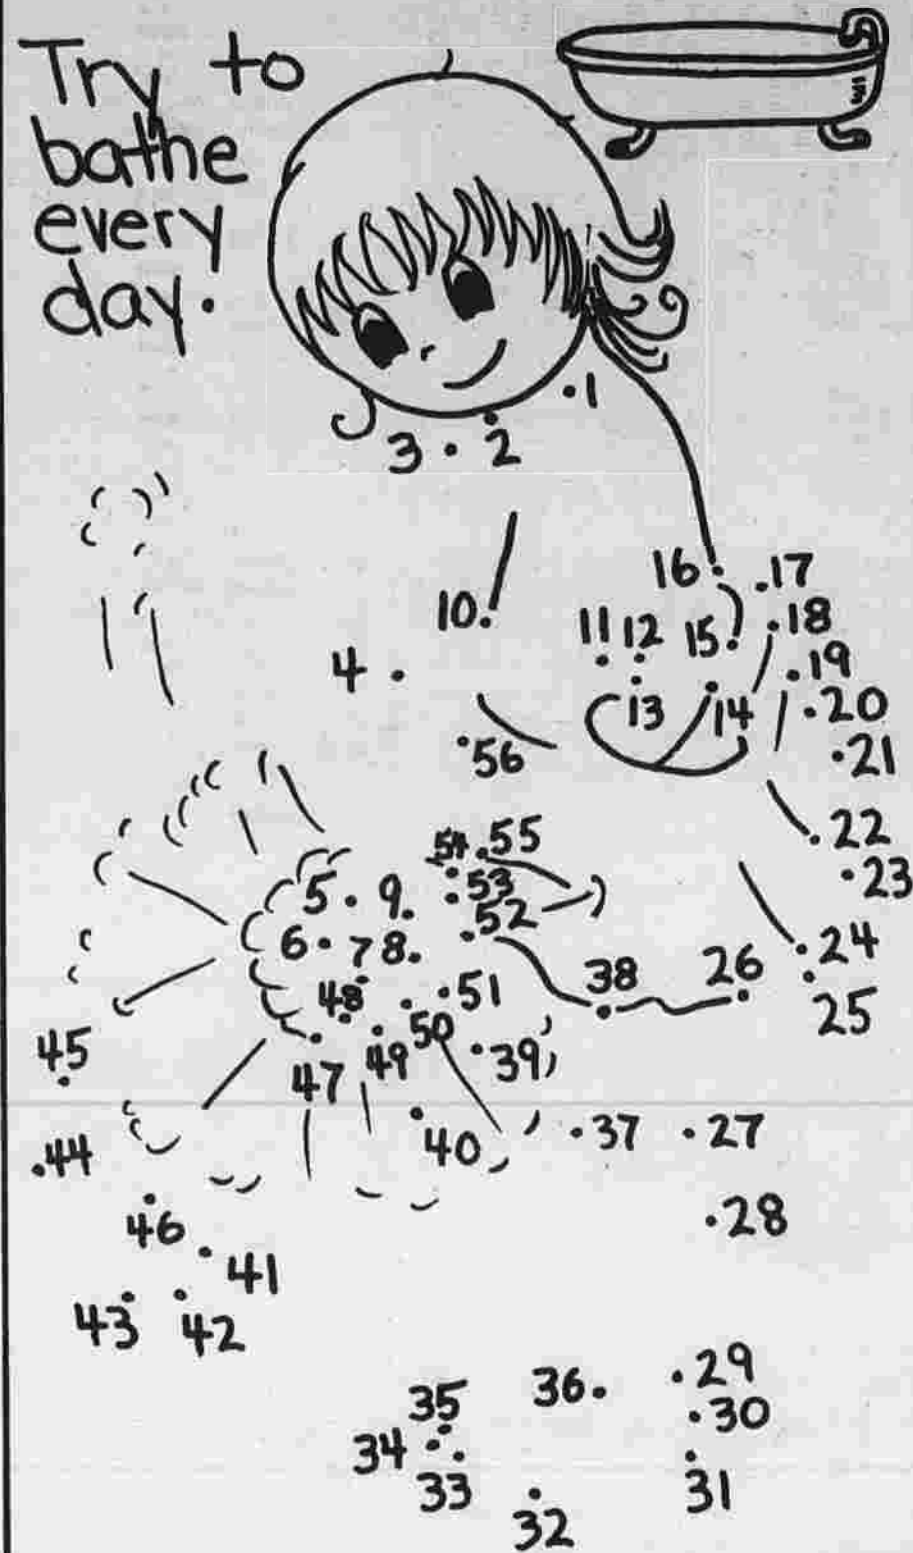 Try to
bathe
every
day.
1
3 2
16 17
10 11 12 15 18
4 19
13 14 20
56 21
54 55 22
5 9 53 23
52
6 7 8 24
38 26
48 51 25
45 50
47 49 39
44 40 37 27
46 28
41
43 42
35 36 29
34 30
33 31
32